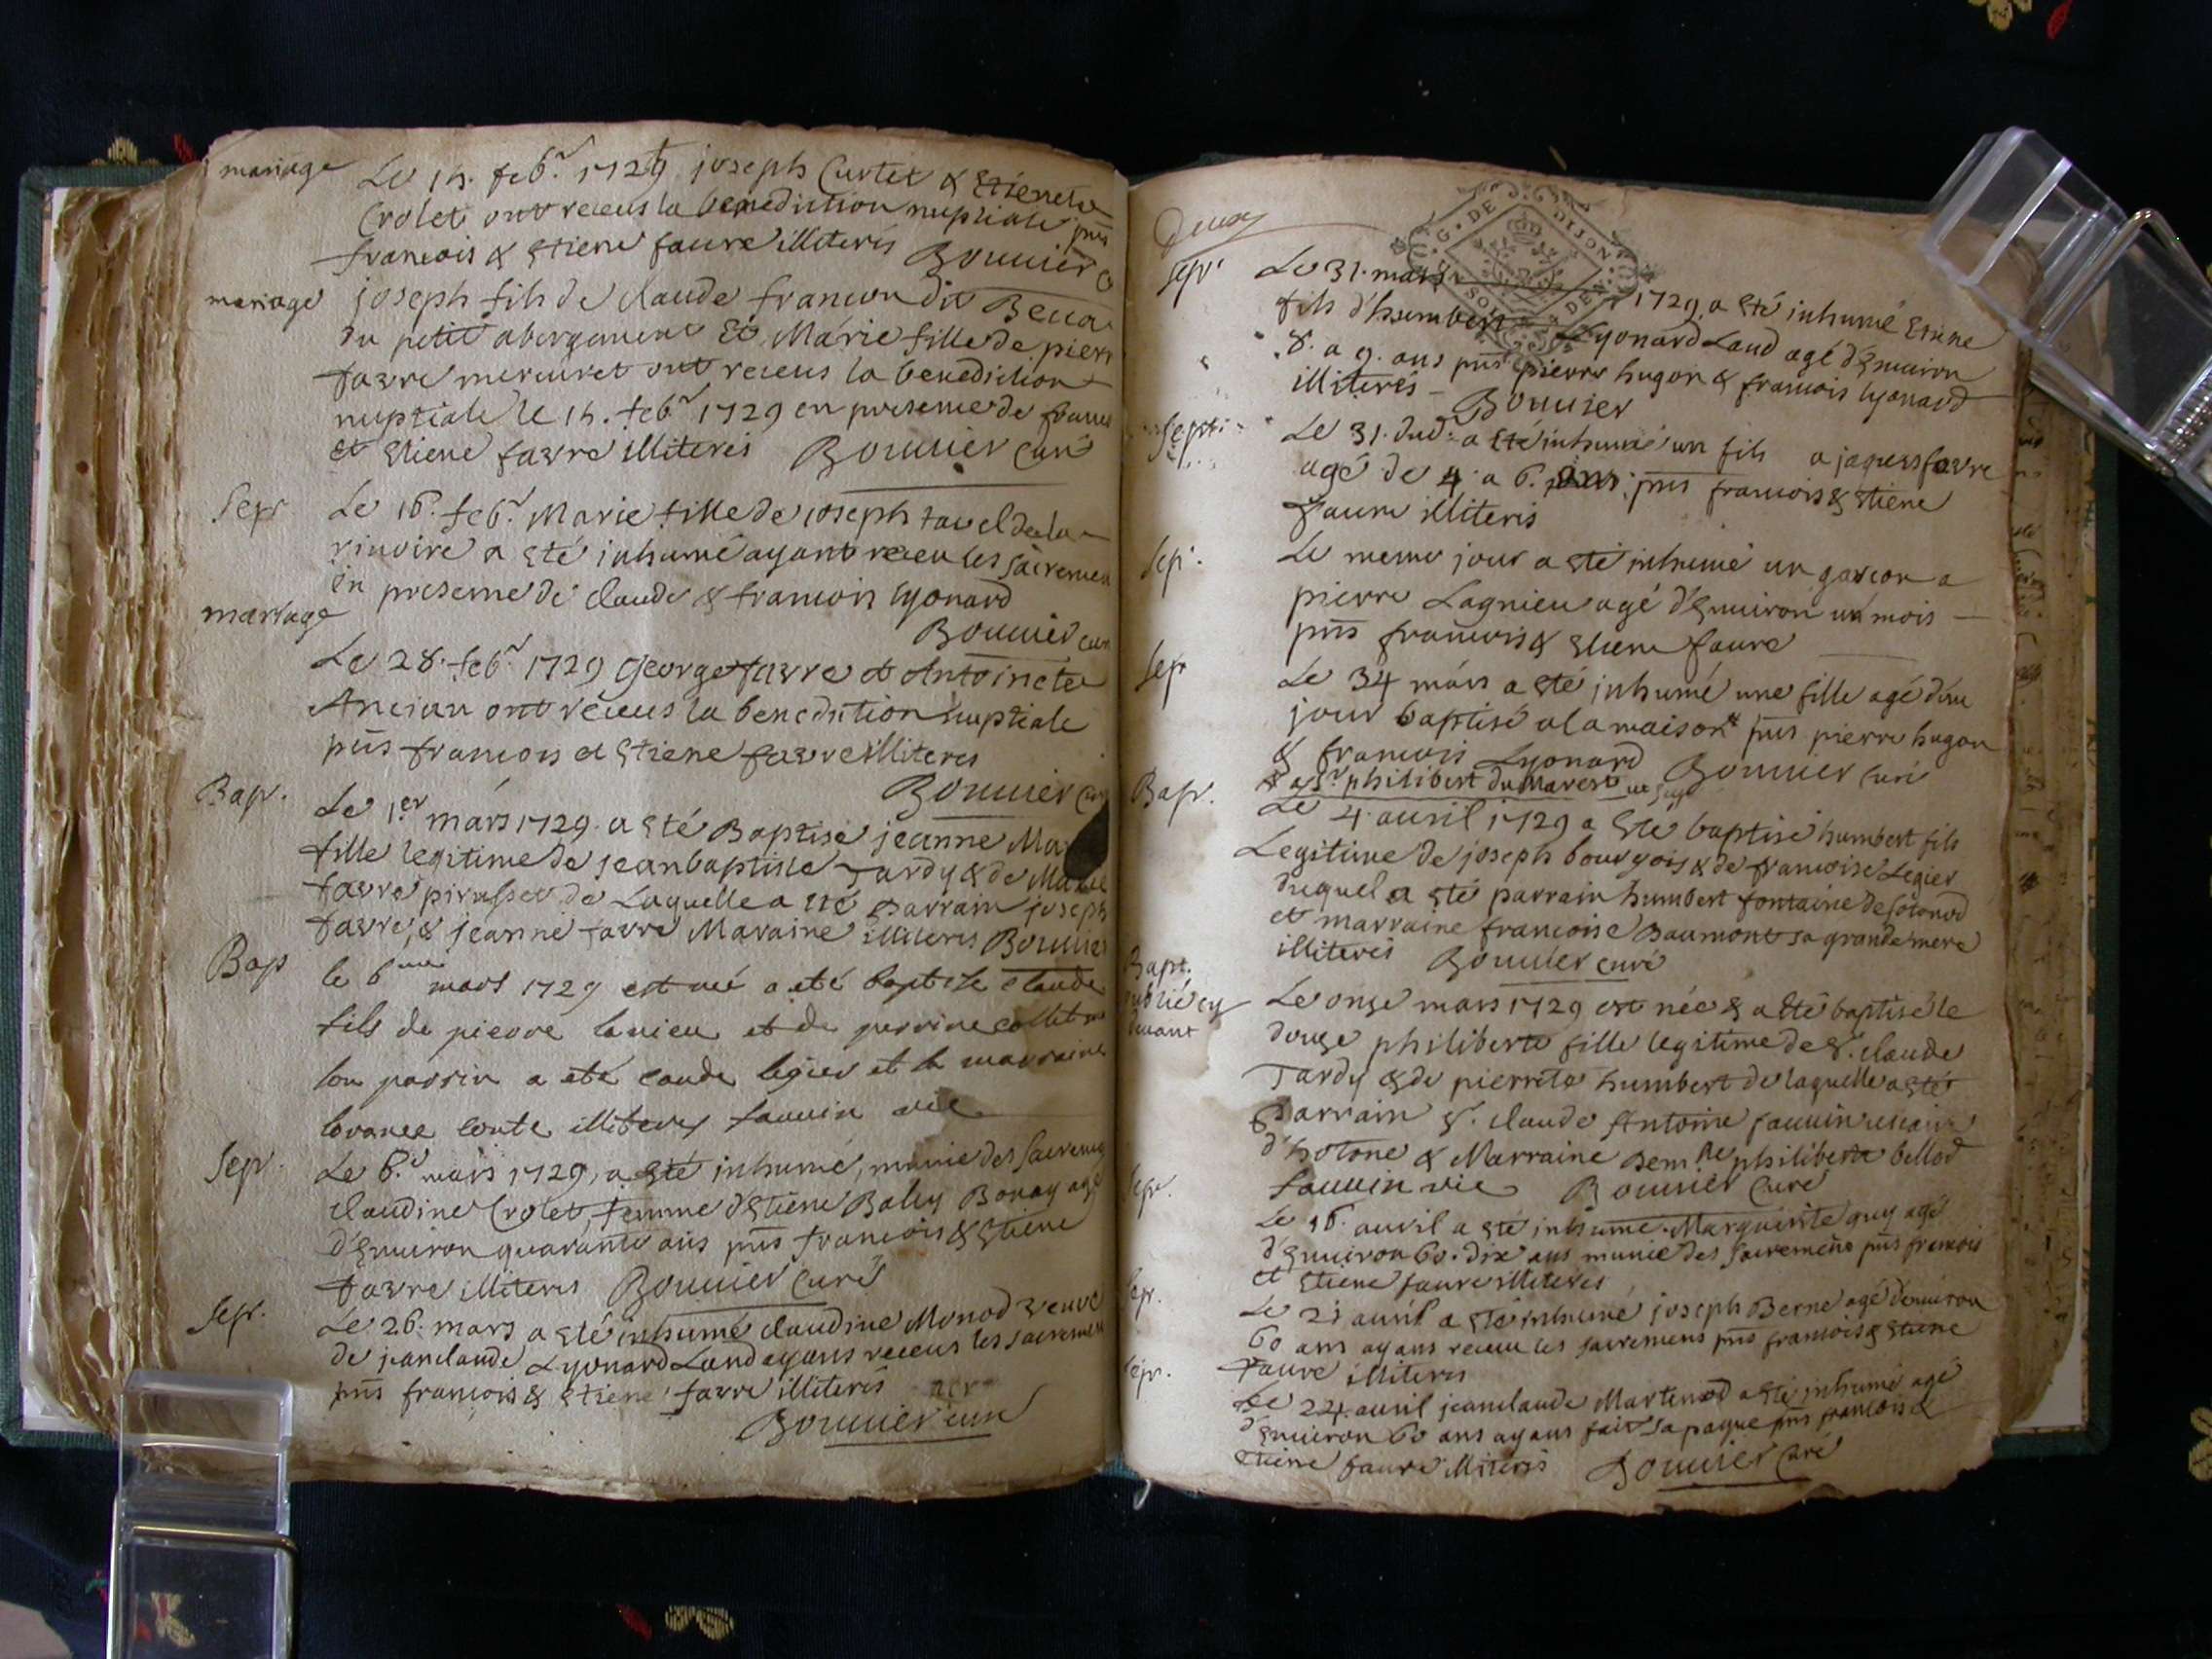 mariage
Le 14. feb.r 1729 joseph Curtet & Etienete
Crolet ont receus la benediction nuptiale pns
francois & Etiene favre illiteris Bouuier
mariage
joseph fils de claude francon dit
du petit abergement Et Marie fille de pierr
favre mercuret ont receus la benediction
nuptiale le 14. feb.r 1729 en presence de franc
et Etiene favre illiteris Bouuier curé
Sepr
Le 16. feb.r Marie fille de joseph tavel de la
rivoire a Eté inhumé ayant receu les sacremen
En presence de claude & francois Lyonard
Bouuier cur
mariage
Le 28. feb.r 1729 George favre et Antoinete
Ancian ont receus la benediction nuptiale
pns francois et Etiene favre illiteris
Bouuier
Bap.
Le 1.er mars 1729. a Eté Baptisé jeanne Mar
fille legitime de jean baptiste Tardy & de Marie
favre de Laquelle a Eté parrain joseph
favre, & jeanne favre Maraine illiteris Bouuier
Bap
le 6me mars 1729 est né a eté baptise claude
fils de pierre et de perrine
son parrin a eté caude legier et la marraine
conte illiterez fauuin vic
Sep.
Le 6.e mars 1729, a Eté inhumé, munie des sacremen
claudine Crolet, femme d'Etiene Baley agé
d'Enuiron quarante ans pns francois & Etiene
favre illiteris Bouuier Curé
Sepr.
Le 26. mars a Eté inhumé claudine Monod veuve
de jeanclaude Lyonard Land ayans receus les sacremen
pns francois & Etiene favre illiteris
Bouuier curé
Deux
G. DE DIJON
Sepr
Le 31. mars 1729. a Eté inhumé Etiene
fils d'humbert Lyonard Land agé d'Enuiron
8. a 9. ans pns pierre hugon & francois lyonard
illiterés - Bouuier
Sepr.
Le 31. dud. a Eté inhumé un fils a jaques favre
agé de 4. a 6. pns francois & Etiene
faure illiteris
Sep.
Le meme jour a Eté inhumé un garcon a
pierre Lagnieu agé d'Enuiron un mois
pns francois & Etiene faure
Sep
Le mars a Eté inhumé une fille agé d'un
jour baptisé a la maison pns pierre hugon
& francois Lyonard Bouuier Curé
a sr. philibert Dumarest
Bapt.
Le 4. auril 1729 a Eté baptisé humbert fils
Legitime de joseph bourgois & de francoise Legier
duquel a Eté parrain humbert fontaine de sotonod
et marraine francoise Baumont sa grande mere
illiteris Bouuier curé
Bapt.
oublié cy
deuant
Le onze mars 1729 est née & a Eté baptisé le
douze philiberte fille legitime de S. claude
Tardy & de pierrete humbert de laquelle a Eté
Parrain S. claude Antoine fauuin vicaire
d'hotone & Marraine Demlle philiberte bellod
fauuin vic Bouuier Curé
Sepr.
Le 16. auril a Eté inhumé Marguerite guy agé
d'Enuiron 60. dix ans munie des sacremens pns francois
et Etiene faure illiteres
Sepr.
Le 21 auril a Eté inhumé joseph Berne agé denuiron
60 ans ayans receu les sacremens pns francois & Etiene
faure illiteris
Sepr.
Le 24. auril jeanclaude Martinod a Eté inhumé agé
d'Enuiron 60 ans ayans fait sa paque pns francois &
Etiene faure illiteris Bouuier Curé